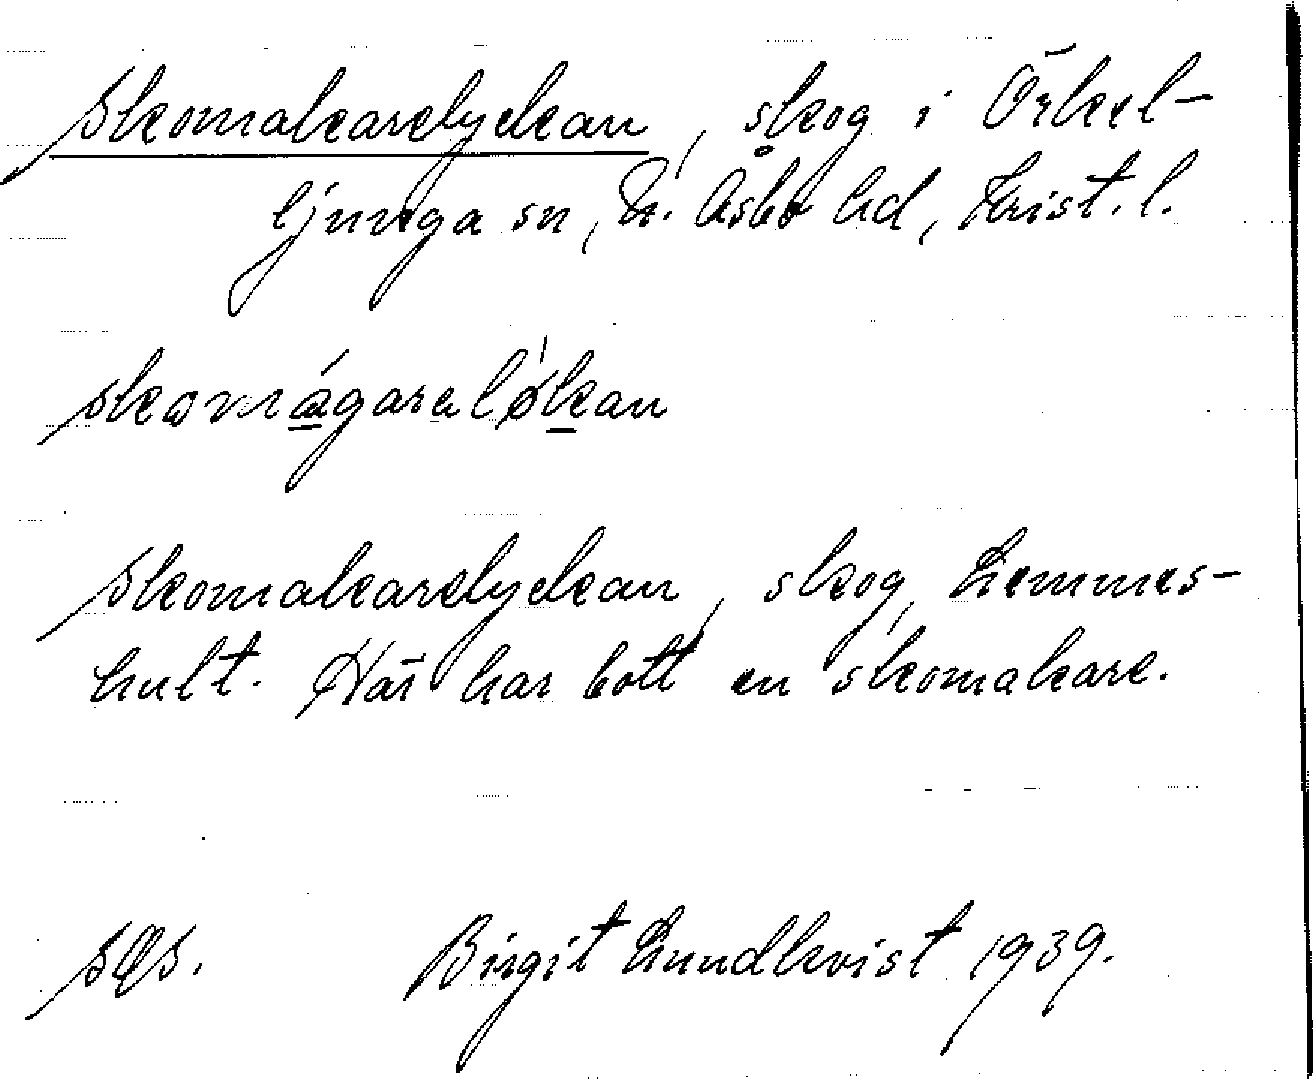 Skomakarelyckan, skog i Örkel-
ljunga sn, N. Åsbo hd, Krist. l.
skomágarelǿkan
Skomakarelyckan, skog, Lemmes-
hult. Här har bott en skomakare.
Birgit Lundkvist 1939.